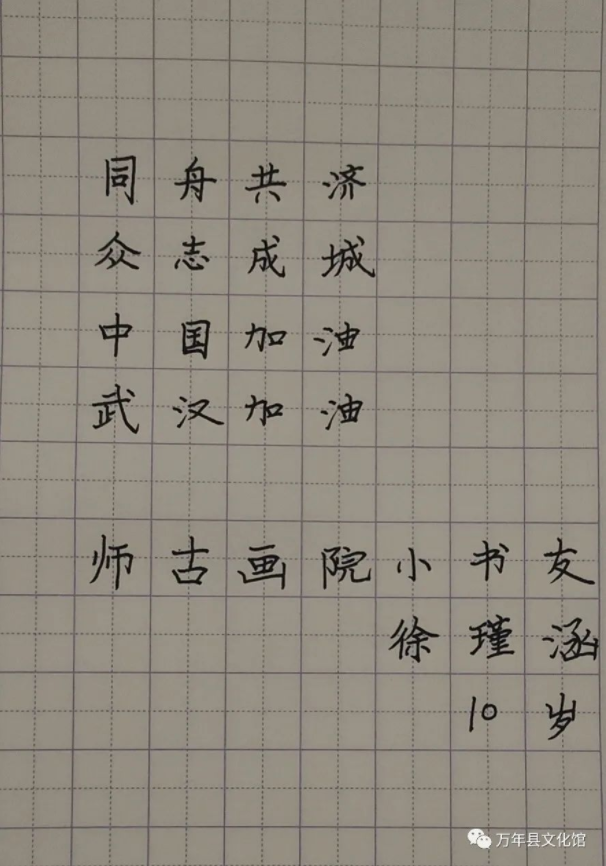 同舟共济
众志成城
中国加油
武汉加油
师古画院小书友
徐瑾涵
10岁
万年县文化馆